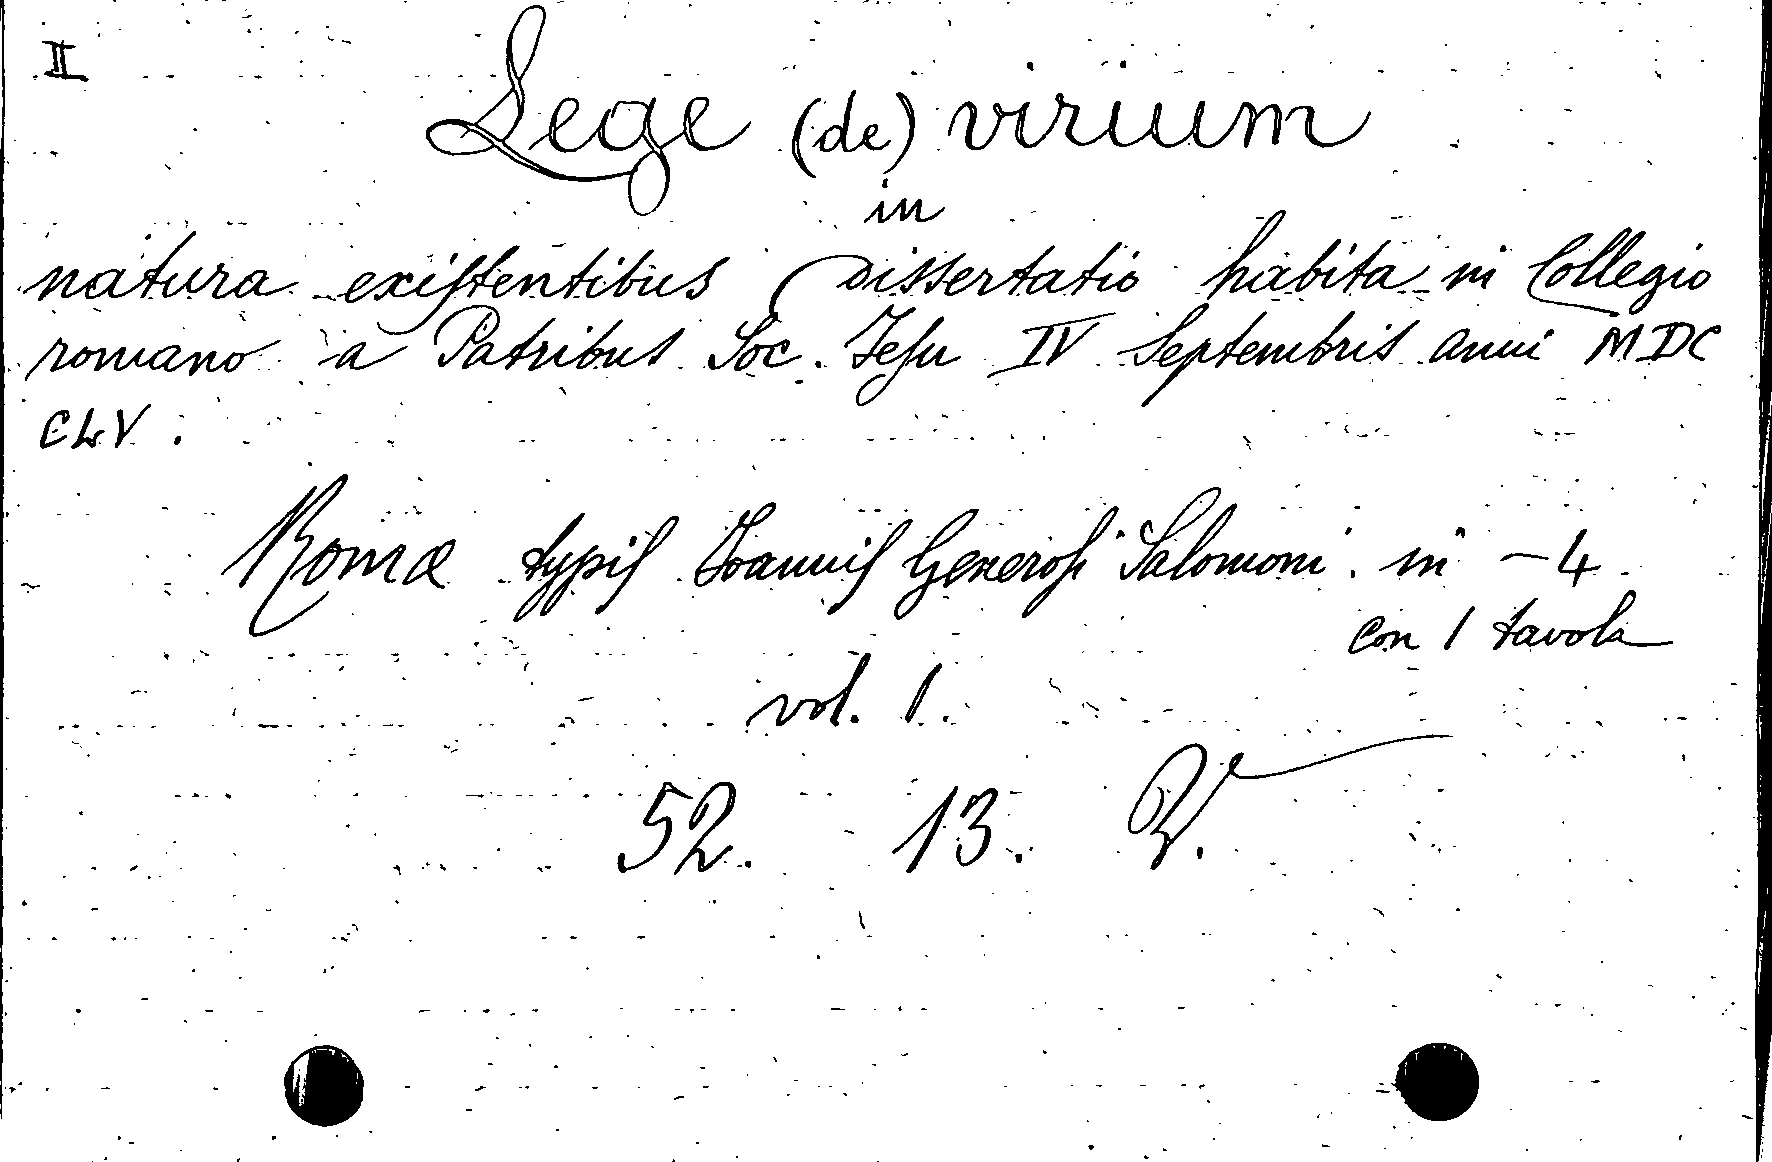 II
Lege (de) virium
in
natura existentibus Dissertatio habita in Collegio
romano a Patribus Soc. Jesu IV Septembris anni MDC
CLV.
Romæ typis Ioannis Generosi Salomoni. in -4
con 1 tavola
vol. 1.
52. 13.